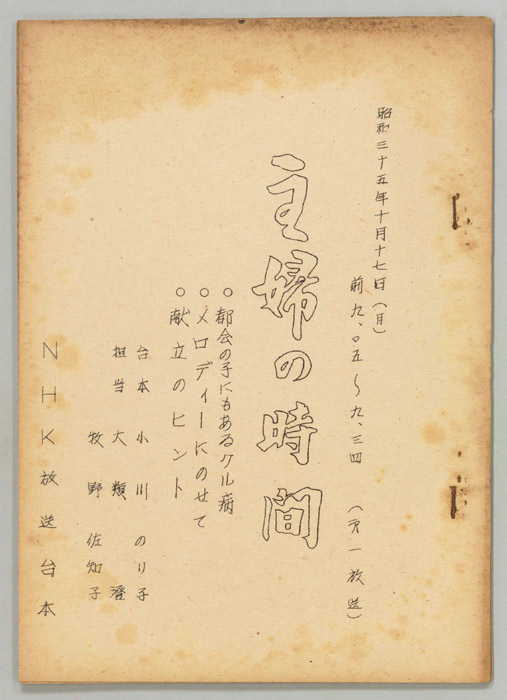 昭和三十五年十月十七日(月)
前九、〇五〜九、三四 (第一放送)
主婦の時間
○都会の子にもあるクル病
○メロディーにのせて
○献立のヒント
台本 小川 のり子
担当 大類 澄
牧野 佐知子
NHK放送台本